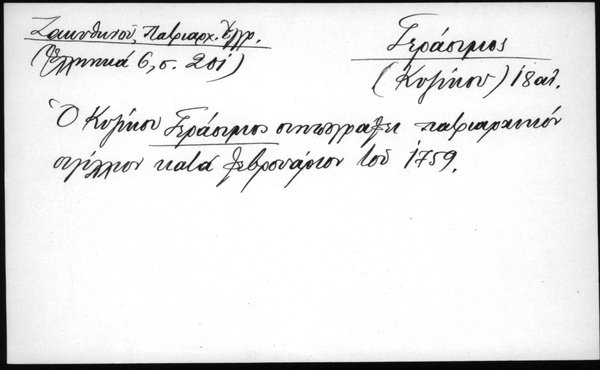 Ζακυθηνοῦ, Πατριαρχ. Ἔγγρ.
(Ἑλληνικά 6, σ. 201)
Γεράσιμος
(Κυζίκου) 18 αἰ.
Ὁ Κυζίκου Γεράσιμος συνυπογράφει πατριαρχικόν
σιγίλλιον κατά φεβρουάριον τοῦ 1759.